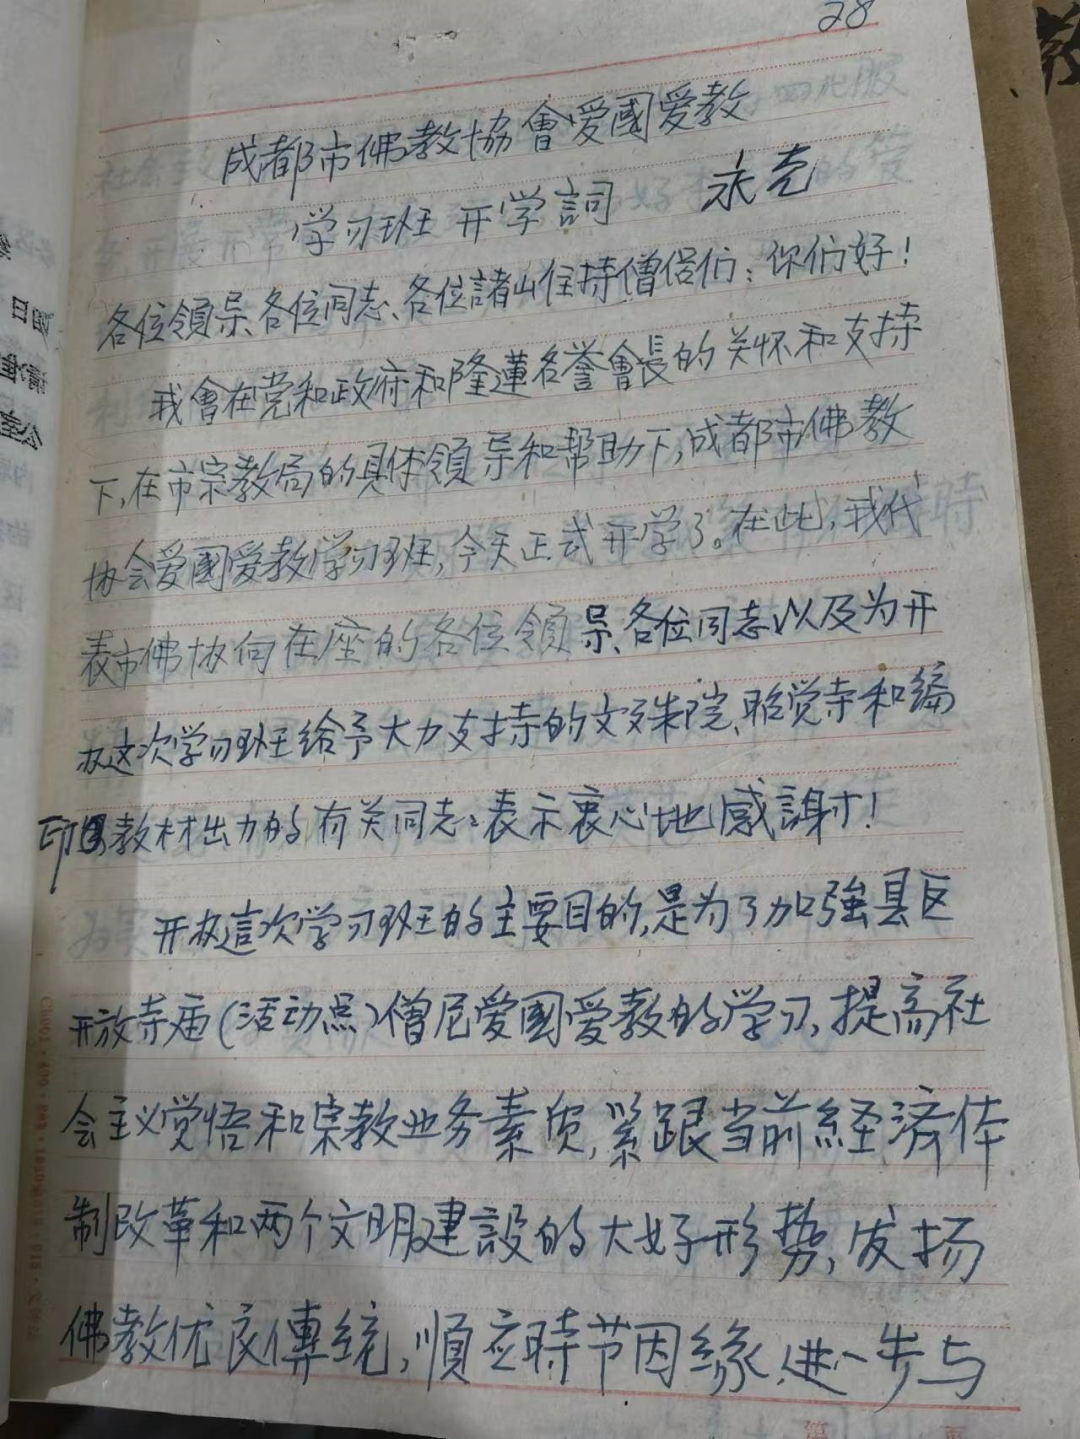 28
成都市佛教協會愛國愛教
学习班 开学詞 永亮
各位領导、各位同志、各位諸山住持僧侣们：你们好！
我會在党和政府和隆蓮名誉會長的关怀和支持
下，在市宗教局的具体領导和帮助下，成都市佛教
协会爱國爱教学习班，今天正式开学了。在此，我代
表市佛协向在座的各位領导、各位同志、以及为开
办这次学习班给予大力支持的文殊院、昭觉寺和编
印教材出力的有关同志：表示衷心地感謝！
开办這次学习班的主要目的，是为了加強县区
开放寺庙（活动点）僧尼爱國爱教的学习，提高社
会主义觉悟和宗教业务素质，紧跟当前経済体
制改革和两个文明建設的大好形势，发扬
佛教优良傳统，順应時节因緣，进一步与